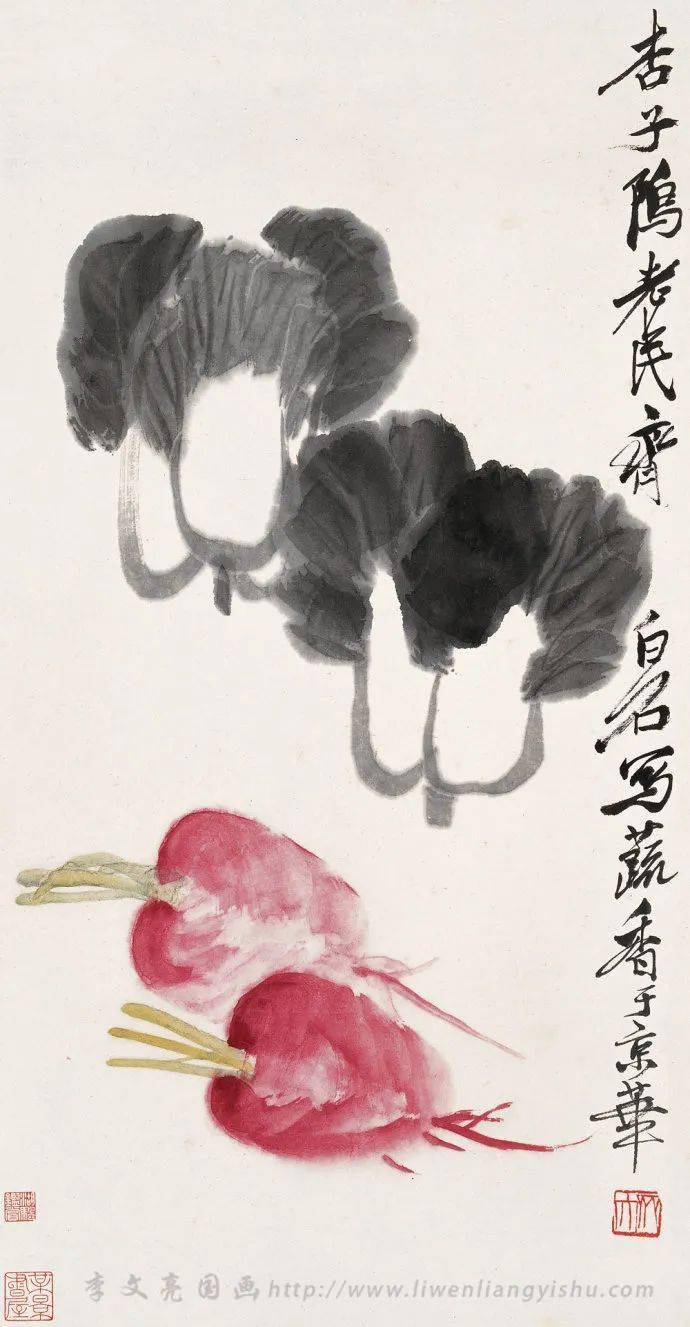 杏子隖老民齊白石寫蔬香于京華
李文亮国画http://www.liwenliangyishu.com